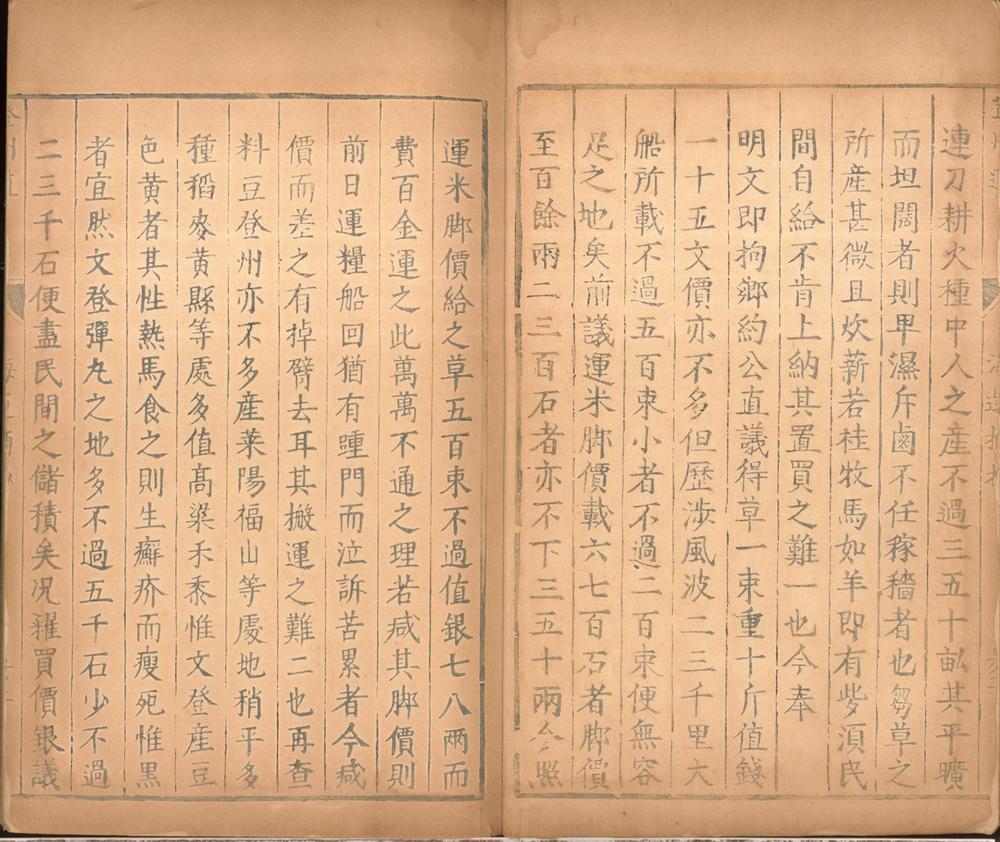 連刀耕火種中人之産不過三五十畝其平曠
而坦闊者則甲濕斥鹵不任稼穡者也芻草之
所産甚微且炊薪若桂牧馬如羊即有些湏民
間自給不肯上納其置買之難一也今奉
明文即拘鄉約公直議得草一束重十斤值錢
一十五文價亦不多但歷涉風波二三千里大
船所載不過五百束小者不過二百束便無容
足之地矣前議運米脚價載六七百石者脚價
至百餘兩二三百石者亦不下三五十兩今照
運米脚價給之草五百束不過值銀七八兩而
費百金運之此萬萬不通之理若咸其脚價則
前日運糧船回猶有踵門而泣訴苦累者今咸
價而差之有掉臂去耳其搬運之難二也再查
料豆登州亦不多産萊陽福山等處地稍平多
種稻麥黃縣等處多值髙粱禾黍惟文登産豆
色黄者其性熱馬食之則生癬疥而瘦死惟黑
者宜然文登彈丸之地多不過五千石少不過
二三千石便盡民間之儲積矣况糴買價銀議